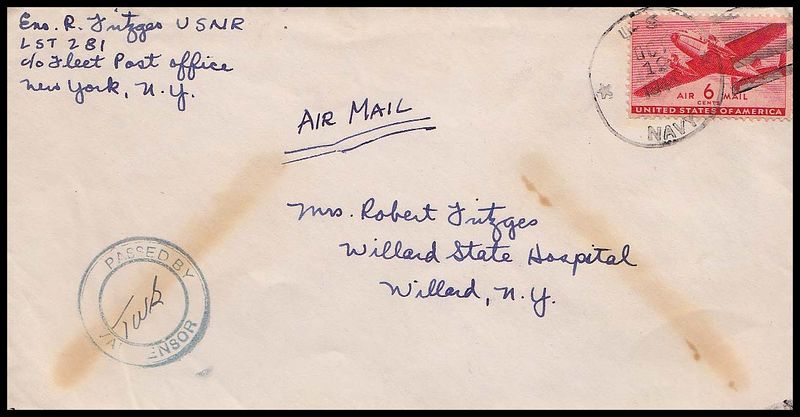 Ens. R. Fritzges USNR
LST 281
c/o Fleet Post office
New York, N.Y.
U.S.
12
AIR 6 MAIL
CENTS
UNITED STATES OF AMERICA
NAVY
AIR MAIL
Mrs. Robert Fritzges
Willard State Hospital
Willard, N.Y.
PASSED BY